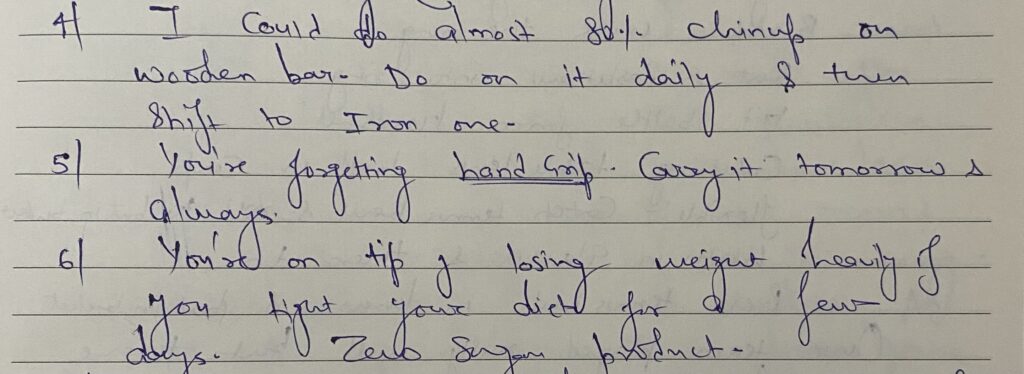 4| I Could do almost 80% chinup on
wooden bar. Do on it daily & then
Shift to Iron one.
5| You're forgetting hand Grip. Carry it tomorrow &
always.
6| You're on tip of losing weight heavily if
you tight your diet for a few
days. Zero Sugar product.